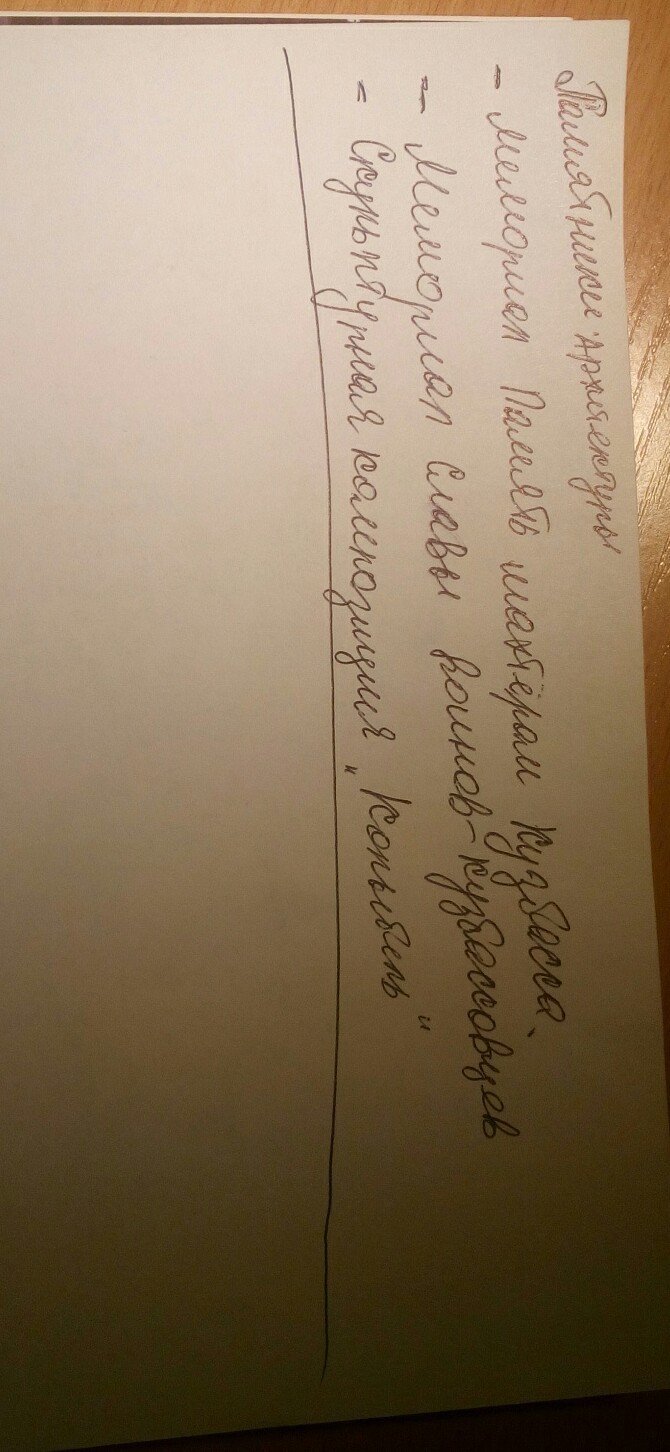 Памятники архитектуры
- мемориал Память шахтёрам Кузбасса
- Мемориал славы воинов-кузбассовцев
- Скульптурная композиция "Копытень"